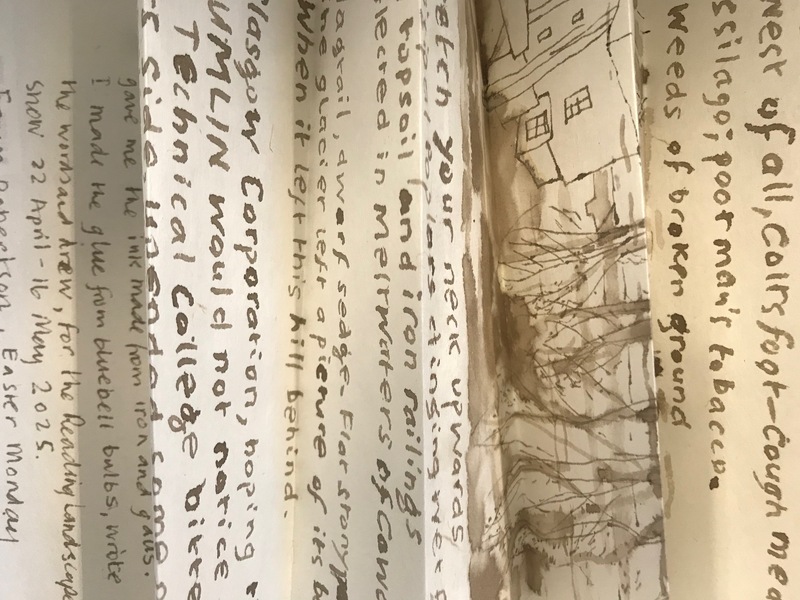 west of all, Coltsfoot - Cough med
ssilago; poor man's tobacco
weeds of broken ground
etch your neck upwards
poplars
topsoil and iron railings
lected in Meltwaters of
dwarf sedge. Flat stony
the glacier left a picture of its
When it left this hill behind.
lasgow Corporation, hoping
UMLIN would not notice
Technical College bitte
gave me the ink made from iron and galls.
I made the glue from bluebell bulbs, wrote
the words and drew, for the Reading Landscape
show 22 April - 16 May 2025.
Robertson, Easter Monday